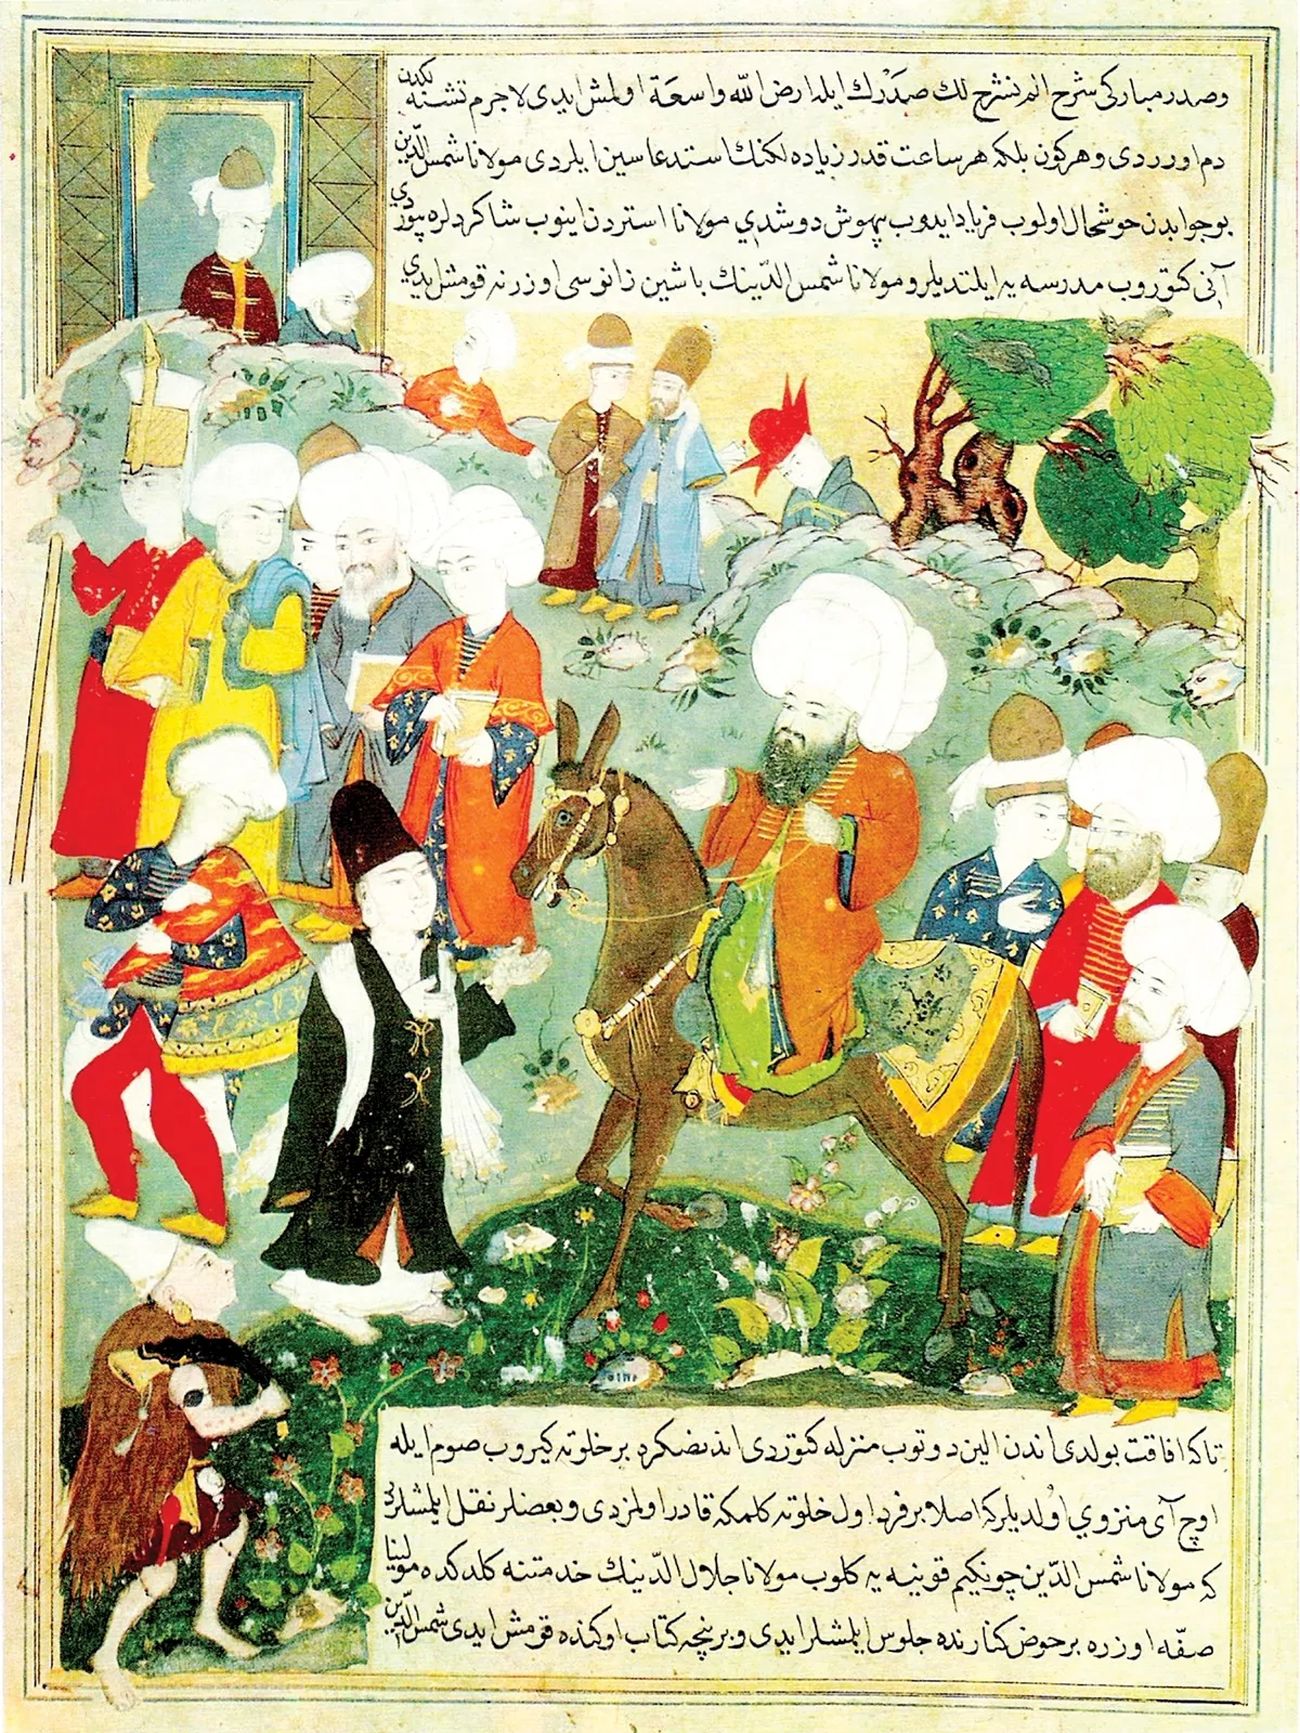 وصدر مباركى شرح الم نشرح لك صدرك ايله ارض الله واسعة اولمش ايدى لاجرم تشنه لكدن
دم اورردى وهركون بلكه هر ساعت قدر زياده لكنك استدعاسين ايلردى مولانا شمس الدين
بو جوابدن خوشحال اولوب فرياد ايدوب بيهوش دوشدي مولانا استردن اينوب شاكردلره بيوردي
آنى كتوروب مدرسه يه ايلتديلر ومولانا شمس الدينك باشين زانوسى اوزرنه قومش ايدي
تاكه افاقت بولدى اندن الين دوتوب منزله كتوردى اندنصكره بر خلوته كيروب صوم ايله
اوچ آى منزوي اولديلر كه اصلا بر فرد اول خلوته كلمكه قادر اولمزدى وبعضلر نقل ايلمشلردر
كه مولانا شمس الدين چونكيم قونيه يه كلوب مولانا جلال الدينك خدمتنه كلدكده مولينا
صفه اوزره بر حوض كنارنده جلوس ايلمشلر ايدي وبر نيچه كتاب اوكنده قومش ايدى شمس الدين